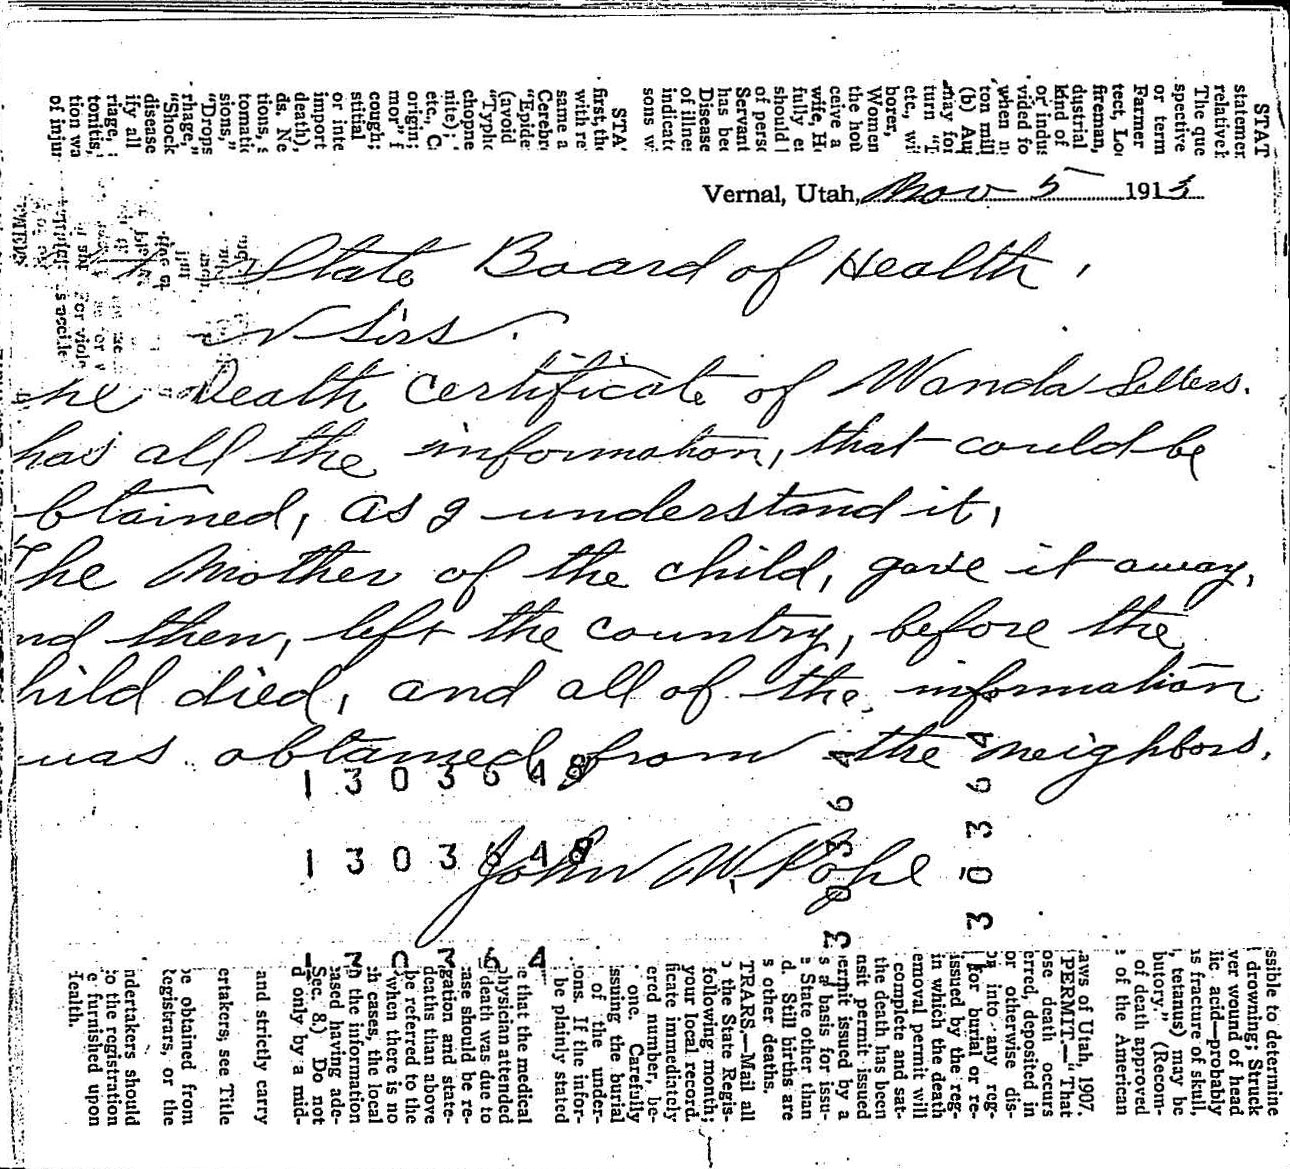 Vernal, Utah, Nov 5 1913
State Board of Health,
Sirs.
he Death Certificate of Wanda Sellers.
has all the information, that could be
btained, as I understand it,
The Mother of the child, gave it away,
nd then, left the country, before the
hild died, and all of the information
was obtained from the neighbors.
1 3 0 3 6 4 8
John W. Pope
1 3 0 3 6 4 8
STAT
statemen
relative
The que
spective
or term
Farmer
tect, Lo
fireman,
dustrial
kind of
or indus
vided fo
when n
ton mill
(b) Au
may for
turn "T
etc., wi
borer,
Women
the hou
ceive a
wife, H
fully e
should
of pers
Servant
has bee
Disease
of illnes
indicat
sons w
STA
first, the
with re
same a
Cerebr
"Epide
(avoid
"Typho
chopne
nite);
etc., C
origin;
mor" f
cough;
stitial
or inte
import
death),
ds. Ne
tions, s
tomatic
sions,"
"Drops
rhage,"
"Shock
disease
ify all
riage,
tonitis,
tion wa
of injur
ssible to determine
drowning; Struck
ver wound of head
lic acid—probably
is fracture of skull,
, tetanus) may be
butory." (Recom-
of death approved
of the American
aws of Utah, 1907.
PERMIT.—"That
ose death occurs
erred, deposited in
or otherwise dis-
into any reg-
for burial or re-
issued by the reg-
in which the death
emoval permit will
complete and sat-
the death has been
nsit permit issued
s a basis for issu-
ermit issued by a
e State other than
d. Still births are
s other deaths.
TRARS.—Mail all
the State Regis-
following month;
your local record.
ficate immediately
ered number, be-
one. Carefully
issuing the burial
of the under-
ions. If the infor-
be plainly stated
e that the medical
physician attended
death was due to
ase should be re-
gation and state-
deaths than above
be referred to the
when there is no
ch cases, the local
n the information
ased having ade-
Sec. 8.) Do not
d only by a mid-
and strictly carry
ertakers, see Title
be obtained from
egistrars, or the
ndertakers should
to the registration
e furnished upon
Health.